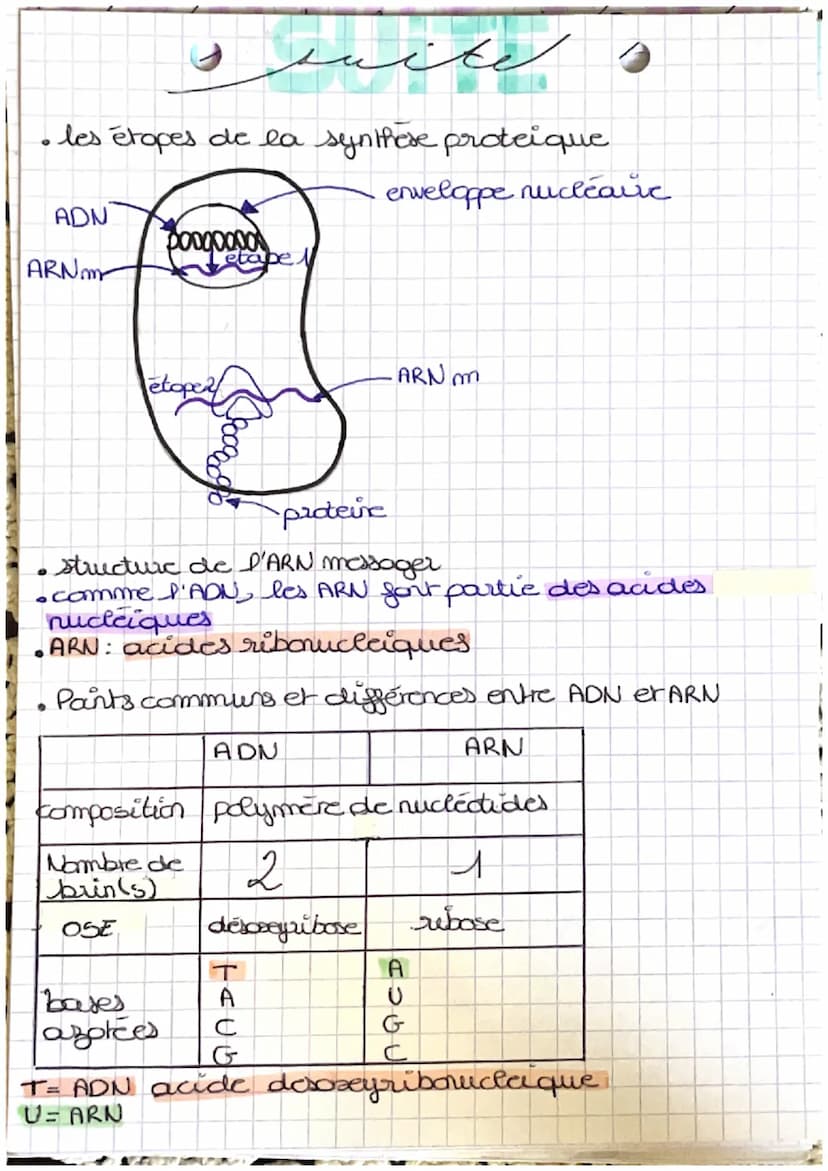 SUITE
suite
• les étapes de la synthèse proteique
enveloppe nucléaire
ADN
etape 1
ARNm
étape 2
ARN m
proteine
• structure de l'ARN messager
• comme l'ADN, les ARN font partie des acides
nucléiques
• ARN : acides ribonucleiques
• Points communs et différences entre ADN et ARN
ADN ARN
composition polymère de nucléotides
Nombre de 2 1
brin(s)
OSE désoxyribose ribose
T A
bases A U
azotées C G
G C
T = ADN acide desoxyribonucleique
U = ARN